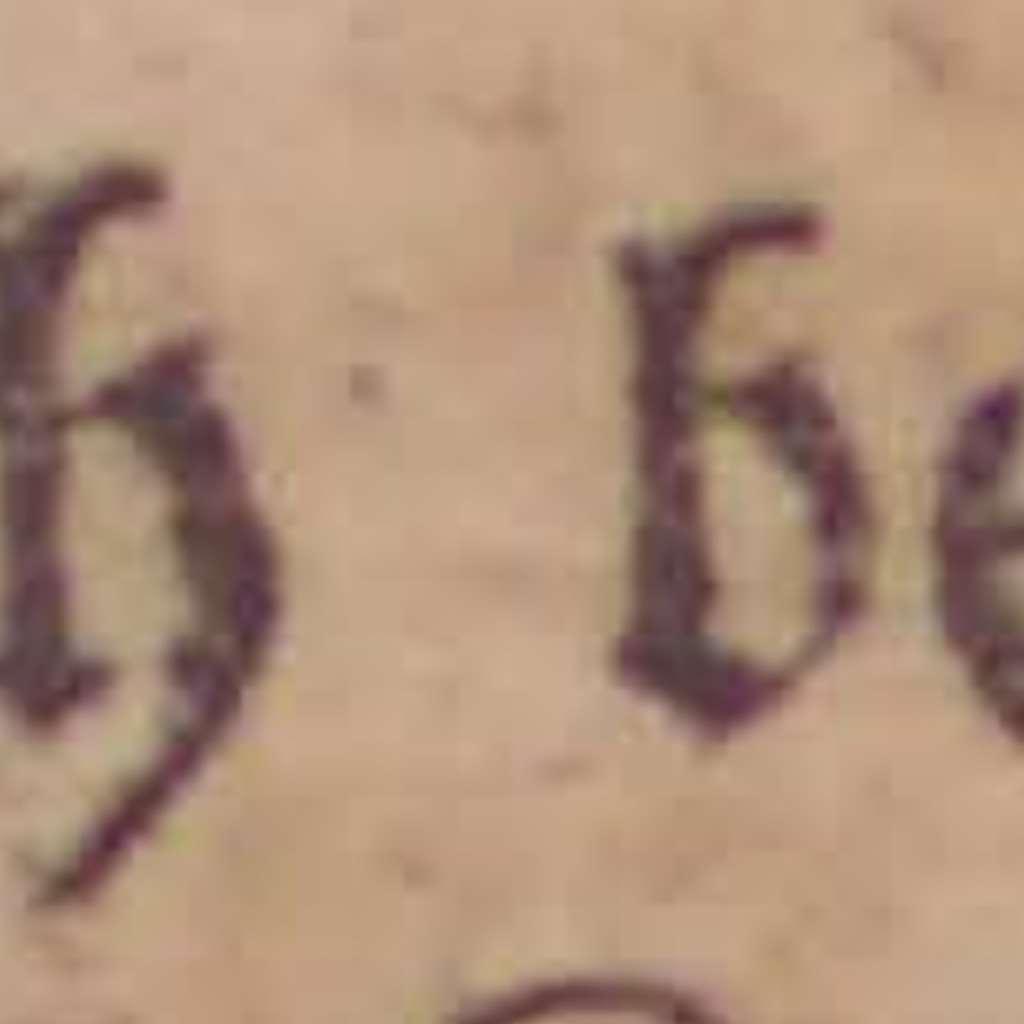 h be